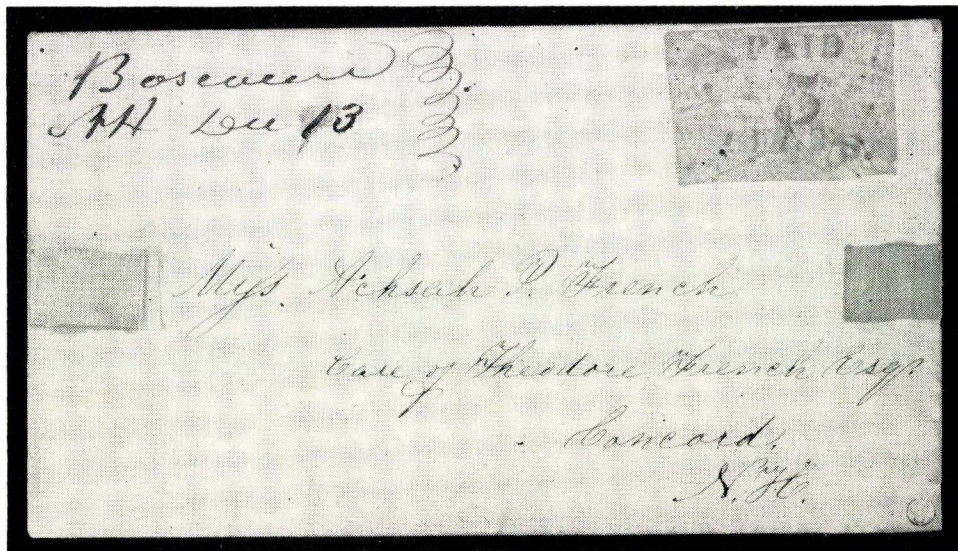 Boscawen
NH Dec 13
PAID
5
CENTS.
Miss Achsah P. French
Care of Theodore French Esqr
Concord,
N.H.